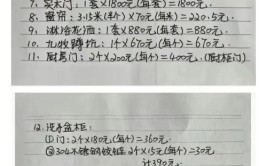 7、实木门：1套×1800元(每套)=1800元.
8、窗帘：3.15米(半个)×70元(每米)=220.5元.
9、淋浴花洒：1套×880元(每套)=880元.
10、九牧蹲坑：1个×670元(每个)=670元.
11、厨房门：2个×200元(每个)=400元.(厨柜门)
12.洗手盆柜：
①门：2个×180元(每个)=360元.
②304不锈钢铰链2个×15元(每个)=30元
计390元.